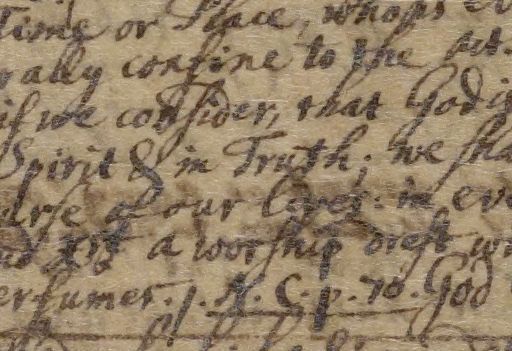 Time or Place, whose
rally confine to the set
if we consider, that God i
Spirit & in Truth; we sha
urse of our lives: in eve
a worship drest w
erfumes. /. N. C. p. 70. God